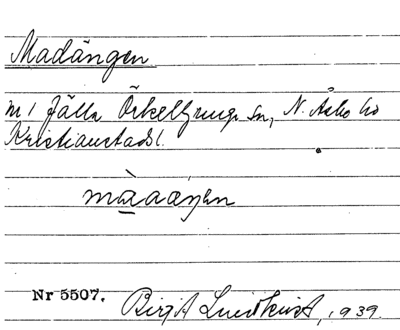 Madängen
m / Fjälla Örkelljunga sn, N. Åsbo hd
Kristianstads l.
màaaŋen
Nr 5507. Birgit Lundkvist, 1939.